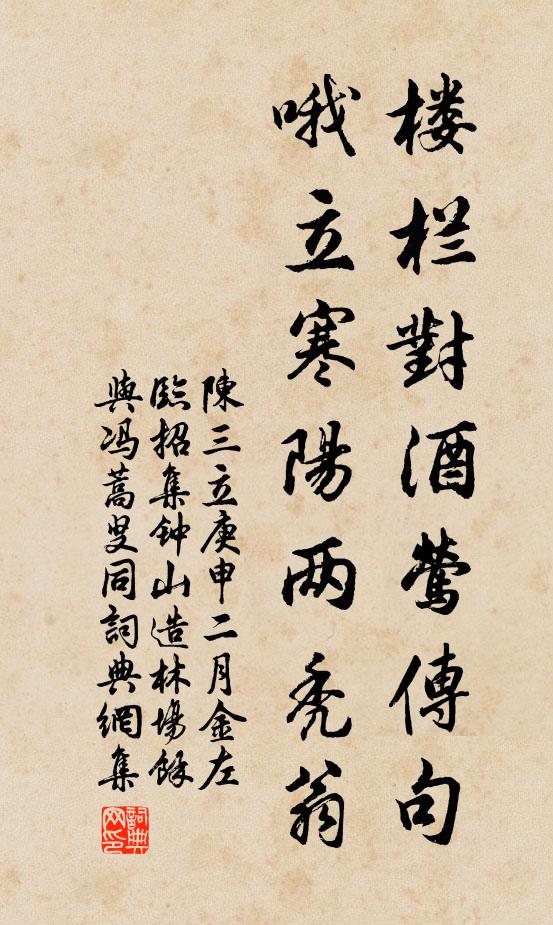 楼栏對酒莺傳句
哦立寒陽两秃翁
陳三立庚申二月金左
臨招集钟山造林場馀
與冯蒿叟同詞典網集
詞典网印